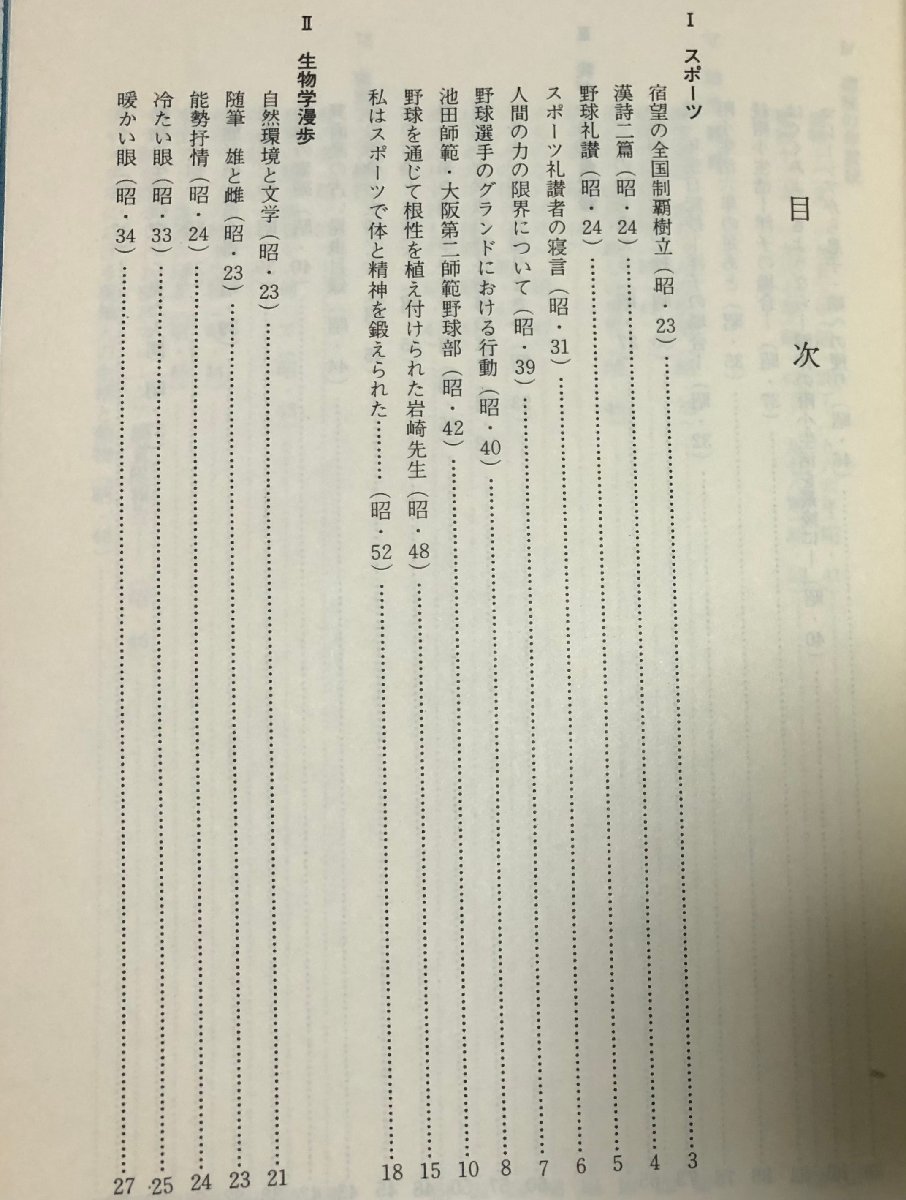 目次
Ⅰ スポーツ
宿望の全国制覇樹立(昭・23)……………3
漢詩二篇(昭・24)……………4
野球礼讃(昭・24)……………5
スポーツ礼讃者の寝言(昭・31)……………6
人間の力の限界について(昭・39)……………7
野球選手のグランドにおける行動(昭・40)……………8
池田師範・大阪第二師範野球部(昭・42)……………10
野球を通じて根性を植え付けられた岩崎先生(昭・48)……………15
私はスポーツで体と精神を鍛えられた………(昭・52)……………18
Ⅱ 生物学漫歩
自然環境と文学(昭・23)……………21
随筆 雄と雌(昭・23)……………23
能勢抒情(昭・24)……………24
冷たい眼(昭・33)……………25
暖かい眼(昭・34)……………27